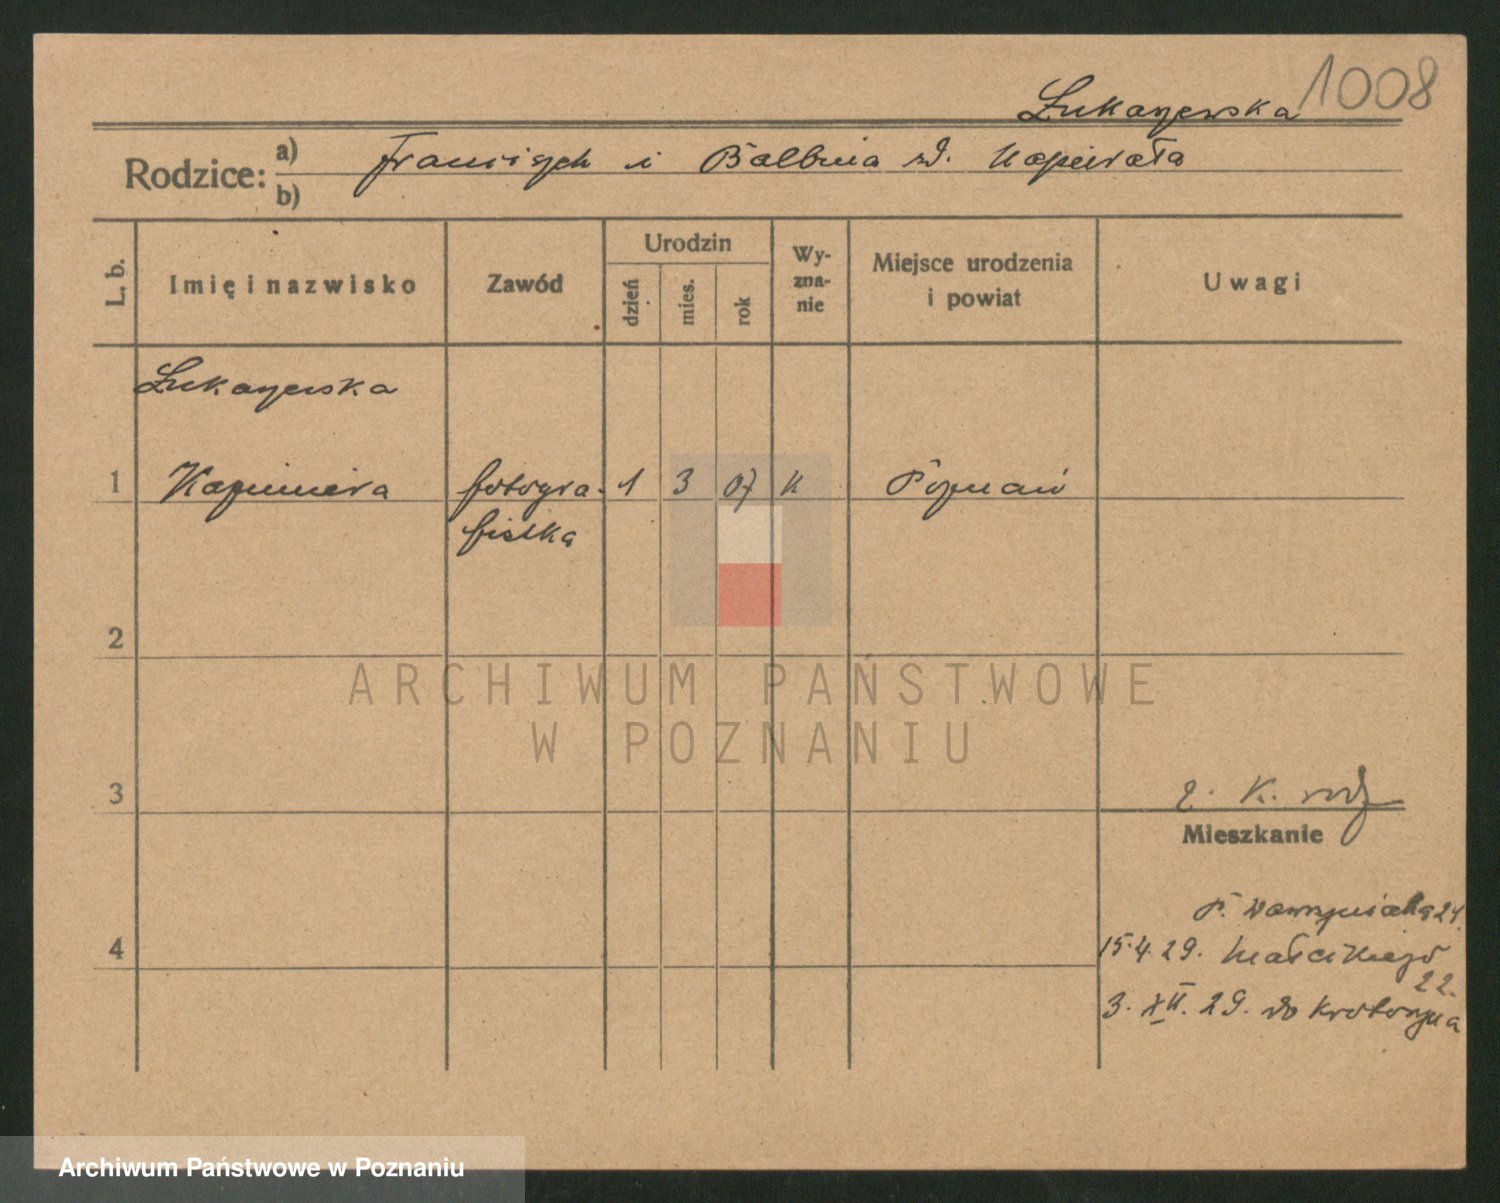 1008
Łukaszewska
Rodzice: a) Franciszek i Balbina zd. Kapierała
b)
L. b.
Imię i nazwisko
Zawód
Urodzin
dzień
mies.
rok
Wy-
zna-
nie
Miejsce urodzenia
i powiat
Uwagi
Łukaszewska
1 Kazimiera fotogra- 1 3 07 K Poznań
fistka
2
ARCHIWUM PAŃSTWOWE
W POZNANIU
3
K.
Mieszkanie
P. Wawrzyniaka 24.
4
15.4.29. Małeckiego
22.
3. XII. 29. do Krotoszyna
Archiwum Państwowe w Poznaniu